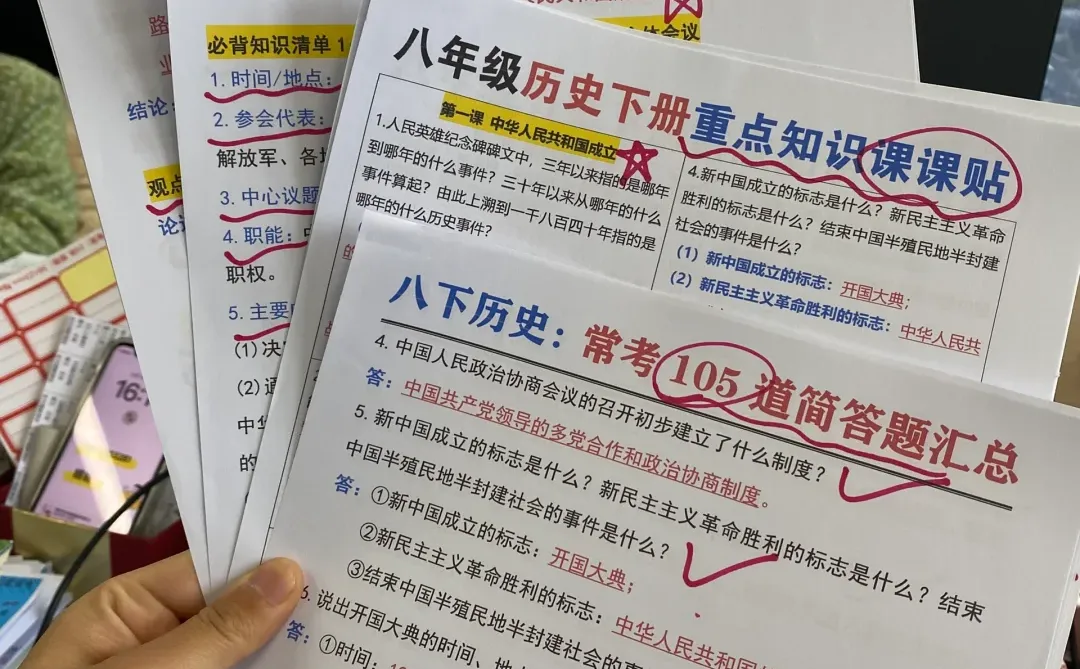 结论
必背知识清单1
1. 时间/地点：
2. 参会代表：
解放军、各
3. 中心议题
4. 职能：
职权。
5. 主要
(1) 决
(2)
的
观点
八年级历史下册重点知识课课贴
第一课 中华人民共和国成立
1.人民英雄纪念碑碑文中，三年以来指的是哪年
到哪年的什么事件？三十年以来从哪年的什么
事件算起？由此上溯到一千八百四十年指的是
哪年的什么历史事件？
4.新中国成立的标志是什么？新民主主义革命
胜利的标志是什么？结束中国半殖民地半封建
社会的事件是什么？
(1) 新中国成立的标志：开国大典；
(2) 新民主主义革命胜利的标志：中华人民共
八下历史：常考105道简答题汇总
4. 中国人民政治协商会议的召开初步建立了什么制度？
答：中国共产党领导的多党合作和政治协商制度。
5. 新中国成立的标志是什么？新民主主义革命胜利的标志是什么？结束
中国半殖民地半封建社会的事件是什么？
答：①新中国成立的标志：开国大典；
②新民主主义革命胜利的标志：中华人民共和国
③结束中国半殖民地半封建社会的事
6. 说出开国大典的时间、地
答：①时间：
16: